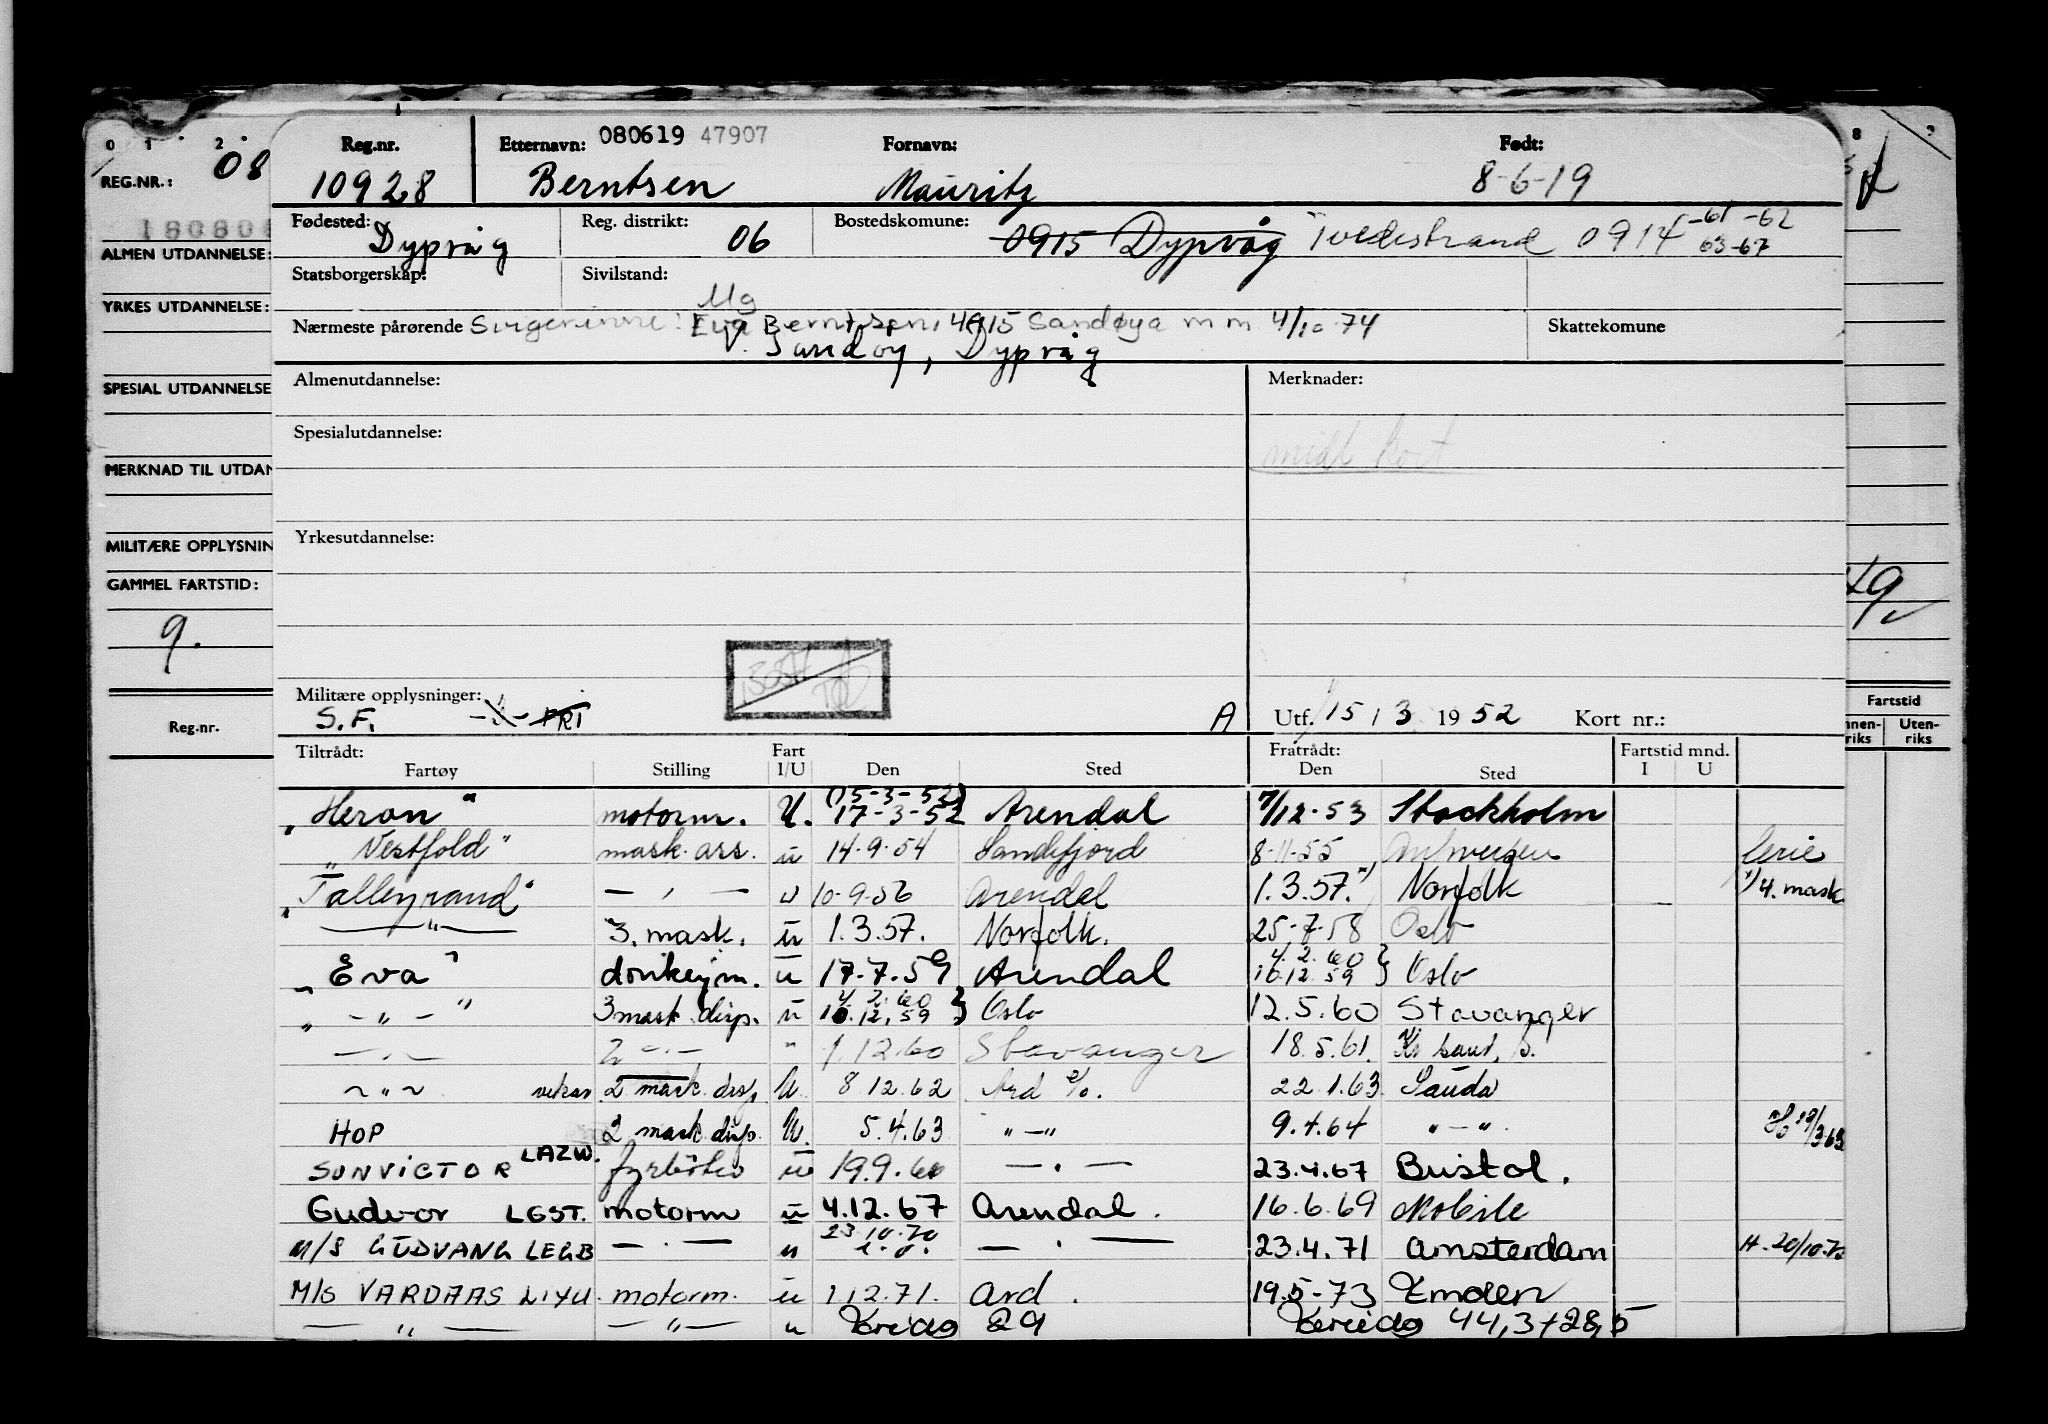 0 1 2 8
REG.NR.: 08
ALMEN UTDANNELSE:
YRKES UTDANNELSE:
SPESIAL UTDANNELSE
MERKNAD TIL UTDAN
MILITÆRE OPPLYSNIN
GAMMEL FARTSTID:
9.
Reg.nr.
Reg.nr. Etternavn: 080619 47907 Fornavn: Født:
10928 Berntsen Mauritz 8-6-19
Fødested: Reg. distrikt: Bostedskomune:
Dypvåg 06 0915 Dypvåg Tvedestrand 0914 -61 -62
63-67
Statsborgerskap: Sivilstand:
Ug
Nærmeste pårørende Eva Berntsen, 4915 Sandøya 4/10-74 Skattekomune
Sandøy, Dypvåg
Almenutdannelse: Merknader:
Spesialutdannelse:
midl kort
Yrkesutdannelse:
Militære opplysninger:
S.F. FRI A Utf. 15/3 1952 Kort nr.:
Tiltrådt: Fart Fratrådt: Fartstid mnd.
Fartøy Stilling I/U Den Sted Den Sted I U
(15-3-52)
"Heron" motorm. U. 17-3-52 Arendal 7/12-53 Stockholm
"Vestfold" mask. ass. u 14-9-54 Sandefjord 8-11-55 Antwerpen ferie
"Talleyrand" — " — u 10-9-56 Arendal 1.3.57. Norfolk 4. mask
— " — 3. mask. u 1.3.57. Norfolk. 25-7-58 Oslo
4.2.60
"Eva" donkeym. u 17-7-59 Arendal 10.12.59 } Oslo
4.2.60
" - " - " 3 mask. disp. u 10.12.59 } Oslo 12.5.60 Stavanger
— " — 2 — " — " 1.12.60 Stavanger 18.5.61. Kr sand, S.
~ " ~ vikar 2 mask. disp. U. 8.12.62 Ard 22.1.63 Sauda
HOP 2 mask. disp. U. 5.4.63 " — " 9.4.64 " — "
SUNVICTOR LAZW. fyrbøter u 19.9.66 — " — 23.4.67 Bristol.
Gudvor LGST. motorm u 4.12.67 Arendal. 16.6.69 Mobile
23.10.70
M/S GUDVANG LEGB — " — u — " — 23.4.71 Amsterdam
M/S VARDAAS LIXU. motorm. u 1.12.71. Ard. 19.5-73 Emden
— " — — " — u 29 44,3+28,5
49
Fartstid
nnen-riks Uten-riks